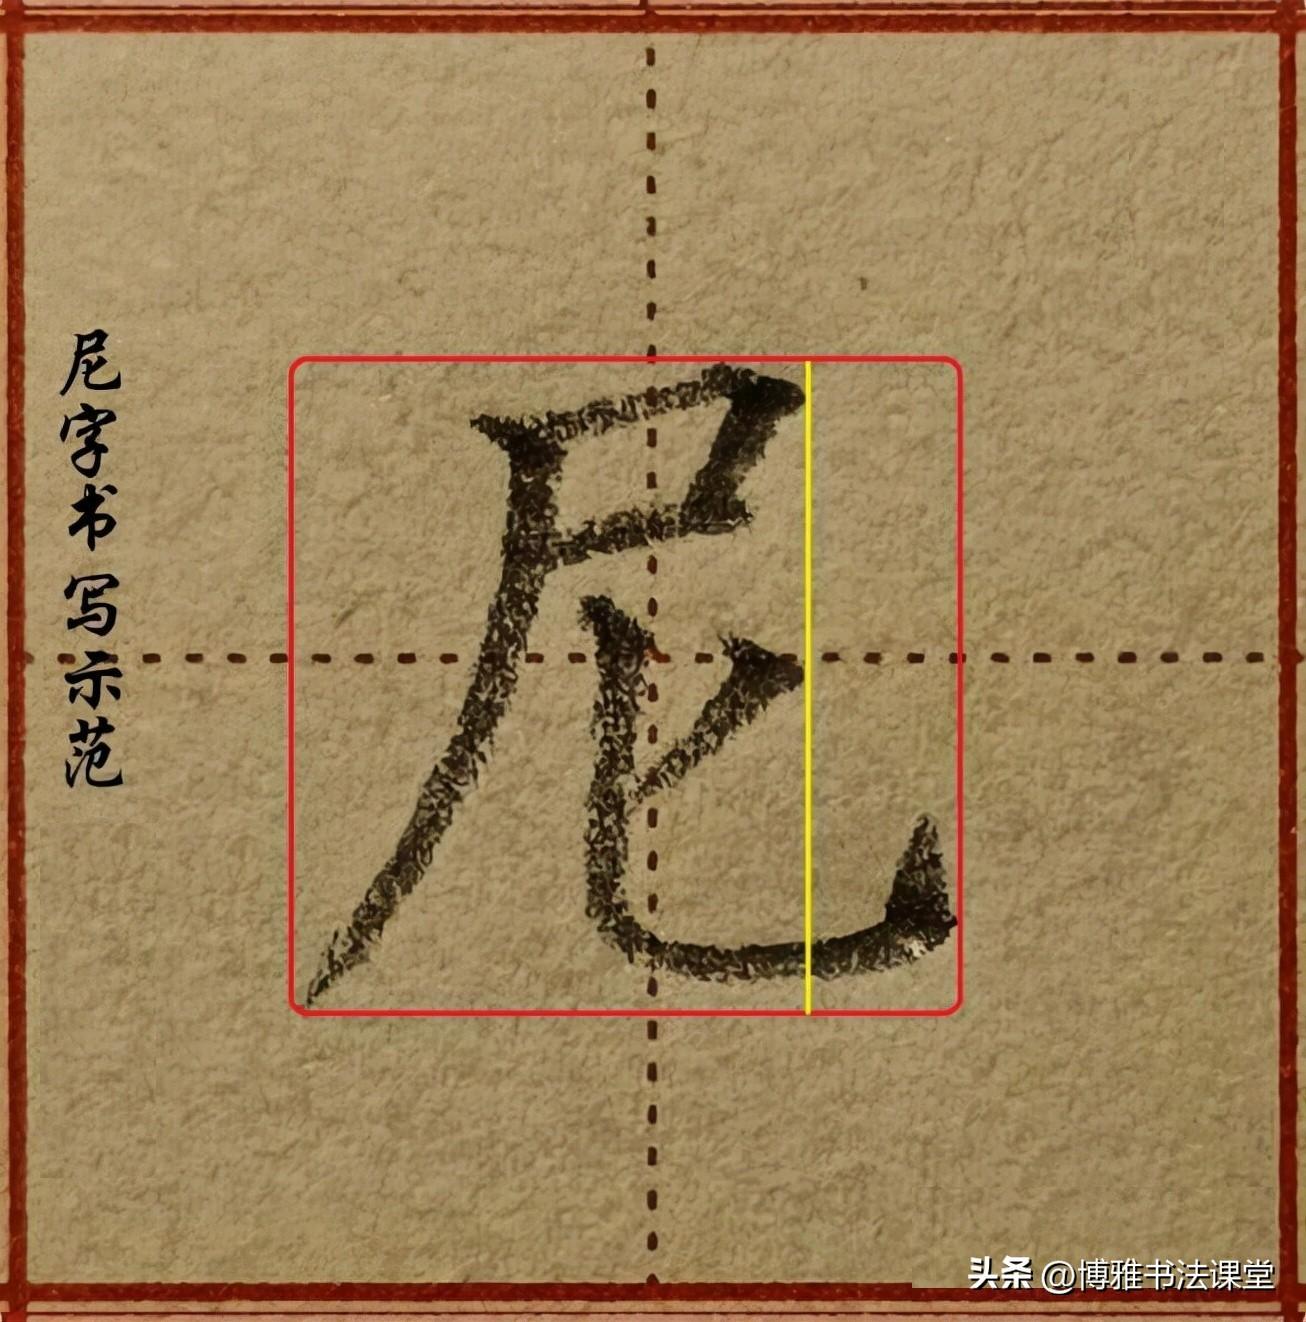 尼字书写示范
尼
头条 @博雅书法课堂